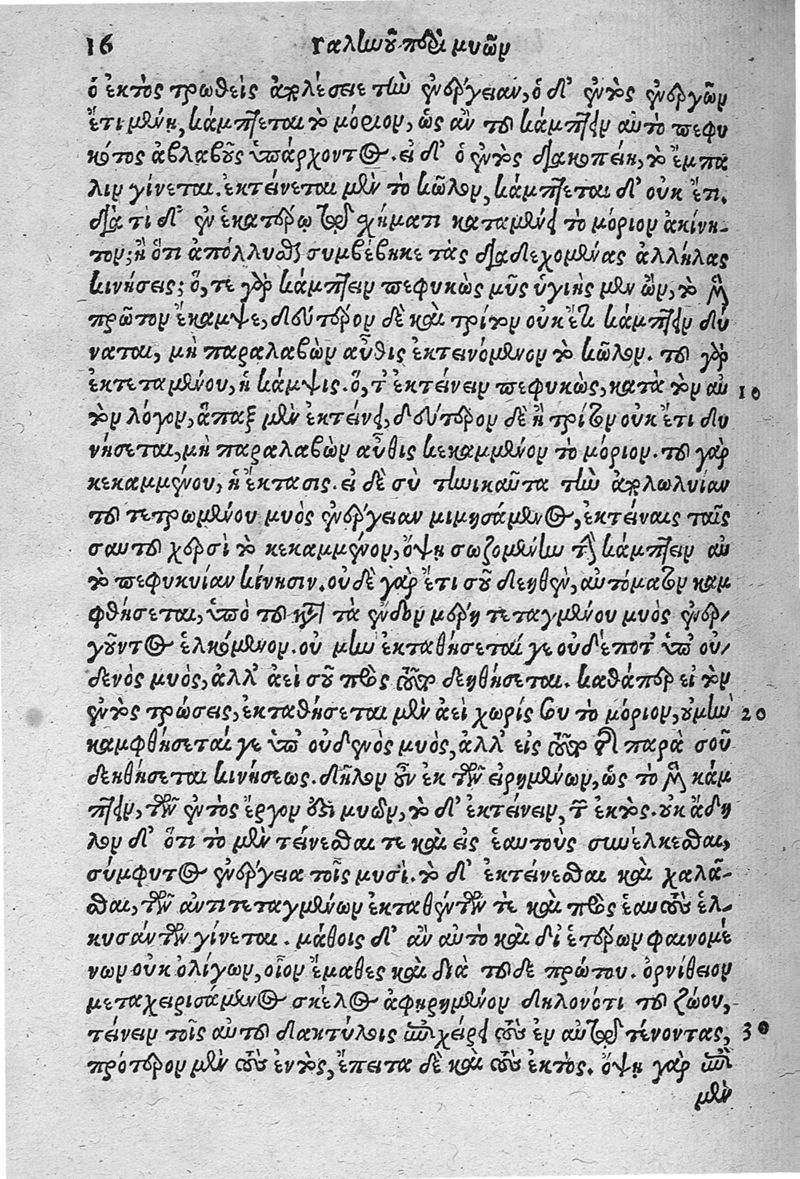 16 Γαλιωοῦ περὶ μυῶν
ὁ ἐκτὸς τρωθεὶς ἀπολέσειε τὴν ἐνέργειαν, ὁ δ' ἐντὸς ἐνεργῶν
ἔτι μένῃ, κάμπτεται τὸ μόριον, ὡς ἂν τοῦ κάμπτειν αὐτὸ πεφυ
κότος ἀβλαβοῦς ὑπάρχοντος. εἰ δ' ὁ ἐντὸς διακοπείη, τὸ ἔμπα
λιν γίνεται. ἐκτείνεται μὲν τὸ κῶλον, κάμπτεται δ' οὐκ ἔτι.
διὰ τὶ δ' ἐν ἑκατέρῳ τῷ σχήματι καταμένει τὸ μόριον ἀκίνη-
τον; ἢ ὅτι ἀπόλλυσθαι συμβέβηκε τὰς διαδεχομένας ἀλλήλας
κινήσεις; ὅ, τε γὰρ κάμπτειν πεφυκὼς μῦς ὑγιὴς μὲν ὢν, τὸ μὲν
πρῶτον ἔκαμψε, δεύτερον δὲ καὶ τρίτον οὐκ ἔτι κάμπτειν δύ
ναται, μὴ παραλαβὼν αὖθις ἐκτεινόμενον τὸ κῶλον. τοῦ γὰρ
ἐκτεταμένου, ἡ κάμψις. ὅ, τ' ἐκτείνειν πεφυκὼς, κατὰ τὸν αὐ 10
τὸν λόγον, ἅπαξ μὲν ἐκτείνει, δεύτερον δὲ ἢ τρίτον οὐκ ἔτι δυ
νήσεται, μὴ παραλαβὼν αὖθις κεκαμμένον τὸ μόριον. τοῦ γὰρ
κεκαμμένου, ἡ ἔκτασις. εἰ δὲ σὺ τηνικαῦτα τὴν ἀπολωλυῖαν
τοῦ τετρωμένου μυὸς ἐνέργειαν μιμησάμενος, ἐκτείναις ταῖς
σαυτοῦ χερσὶ τὸ κεκαμμένον, ὄψῃ σωζομένην τὴν κάμπτειν αὐ
τὸ πεφυκυῖαν κίνησιν. οὐδὲ γὰρ ἔτι σοῦ δεηθὲν, αὐτόματον καμ
φθήσεται, ὑπὸ τοῦ κατὰ τὰ ἔνδον μέρη τεταγμένου μυὸς ἐνερ-
γοῦντος ἑλκόμενον. οὐ μὴν ἐκταθήσεταί γε οὐδέποτ' ὑπ' οὐ-
δενὸς μυὸς, ἀλλ' ἀεὶ σοῦ πρὸς τοῦτο δεηθήσεται. καθάπερ εἰ τὸν
ἐντὸς τρώσεις, ἐκταθήσεται μὲν ἀεὶ χωρίς σου τὸ μόριον, οὐ μὴν 20
καμφθήσεταί γε ὑπ' οὐδενὸς μυὸς, ἀλλ' εἰς τοῦτο τῆς παρὰ σοῦ
δεηθήσεται κινήσεως. δῆλον οὖν ἐκ τῶν εἰρημένων, ὡς τὸ μὲν κάμ
πτειν, τῶν ἐντὸς ἔργον ἐστὶ μυῶν, τὸ δ' ἐκτείνειν, τῶν ἐκτός. οὐκ ἄδη
λον δ' ὅτι τὸ μὲν τείνεσθαι τε καὶ εἰς ἑαυτοὺς συνέλκεσθαι,
σύμφυτος ἐνέργεια τοῖς μυσί. τὸ δ' ἐκτείνεσθαι καὶ χαλᾶ-
σθαι, τῶν ἀντιτεταγμένων ἐκταθέντων τὲ καὶ πρὸς ἑαυτοὺς ἑλ-
κυσάντων γίνεται. μάθοις δ' ἂν αὐτὸ καὶ δι' ἑτέρων φαινομέ
νων οὐκ ὀλίγων, οἷον ἔμαθες καὶ διὰ τοῦδε πρώτου. ὀρνίθειον
μεταχειρισάμενος σκέλος ἀφῃρημένον δηλονότι τοῦ ζώου,
τείνειν τοῖς αὐτοῦ δακτύλοις ἐπιχείρει τοὺς ἐν αὐτῷ τένοντας, 30
πρότερον μὲν τοὺς ἐντὸς, ἔπειτα δὲ καὶ τοὺς ἐκτός. ὄψῃ γὰρ ἐπὶ
μὲν